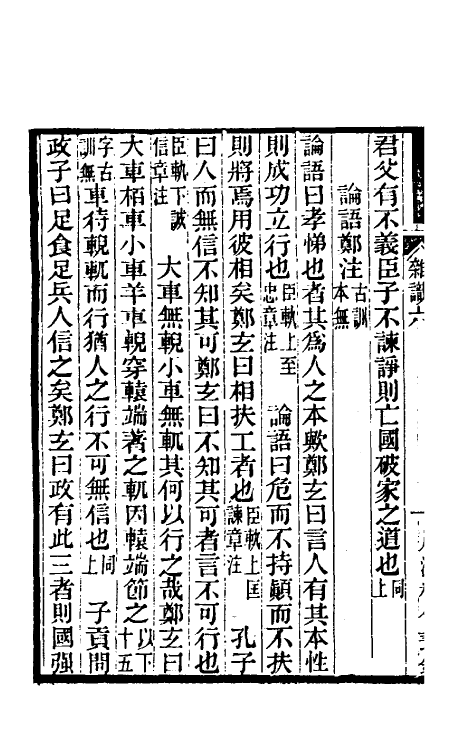 君父有不義臣子不諫諍則亡國破家之道也同上
論語鄭注古訓本無
論語曰孝悌也者其為人之本歟鄭玄曰言人有其本性
則成功立行也臣軌上至忠章注　論語曰危而不持顛而不扶
則將焉用彼相矣鄭玄曰相扶工者也臣軌上匡諫章注　孔子
曰人而無信不知其可鄭玄曰不知其可者言不可行也
臣軌下誠信章注　大車無輗小車無軏其何以行之哉鄭玄曰
大車栢車小車羊車輗穿轅端著之軏因轅端節之以下十五
字古訓無車待輗軏而行猶人之行不可無信也同上　子貢問
政子曰足食足兵人信之矣鄭玄曰政有此三者則國强
雜識六